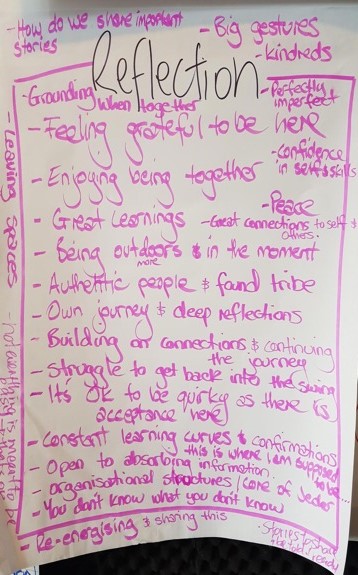 - How do we share important stories
- Big gestures
- kindreds
Reflection
- Grounding when together
- Perfectly imperfect
- Feeling grateful to be here
- Confidence in self & skills
- Enjoying being together
- Peace
- Great Learnings
- Great connections to self & others.
- Being outdoors & in the moment
more
- Authentic people & found tribe
- Own journey & deep reflections
- Building on connections & continuing the journey
- Struggle to get back into the swing
- It's OK to be quirky as there is acceptance here
- Constant learning curves & confirmations
this is where I am supposed to be...
- Open to absorbing information
- organisational structures / core of
- You don't know what you don't know
- Re-energising & sharing this
- Stories to share
- Leaving spaces
- not everything is meant to be